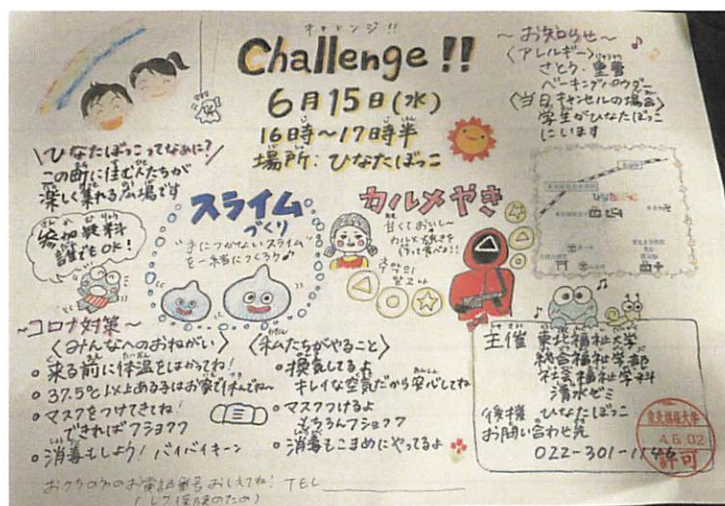 チャレンジ!!
Challenge !!
6月15日(水)
16時〜17時半
場所:ひなたぼっこ
〜お知らせ〜
〈アレルギー〉
さとう・重曹
じゅうそう
ベーキングパウダー
〈当日キャンセルの場合〉
学生がひなたぼっこ
にいます
\ひなたぼっこってなぁに?/
この町に住む人たちが
楽しく集れる広場です
参加費無料
誰でもOK!
スライム
づくり
"手につかないスライム"
を一緒につくろう♪
カルメやき
甘くておいし〜
カルメ焼きを
作って食べよ!!
추억의
달고나
ひなたぼっこ
〜コロナ対策〜
〈みんなへのおねがい〉
○来る前に体温をはかってね!
○37.5℃以上ある子はお家で休んでね〜
○マスクをつけてきてね!
できればフショクフ
○消毒もしよう!バイバイキーン
〈私たちがやること〉
○換気してるよ
キレイな空気だから安心してね
○マスクつけるよ
もちろんフショクフ
○消毒もこまめにやってるよ
主催 東北福祉大学
総合福祉学部
社会福祉学科
清水ゼミ
後援 ひなたぼっこ
お問い合わせ先
022-301-1146
東北福祉大学
4.6.02
許可
おうちの方のお電話番号おしえてね! TEL